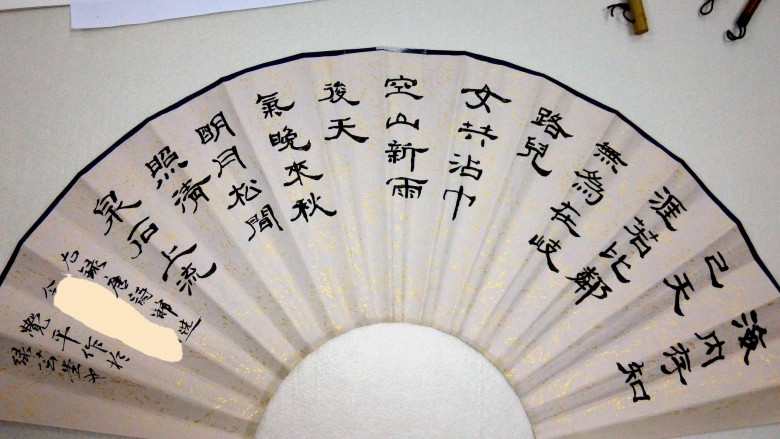 海内存知
己天
涯若比鄰
無為在岐
路兒
女共沾巾
空山新雨
後天
氣晚來秋
明月松間
照清
泉石上流
右録唐詩
覺平作於